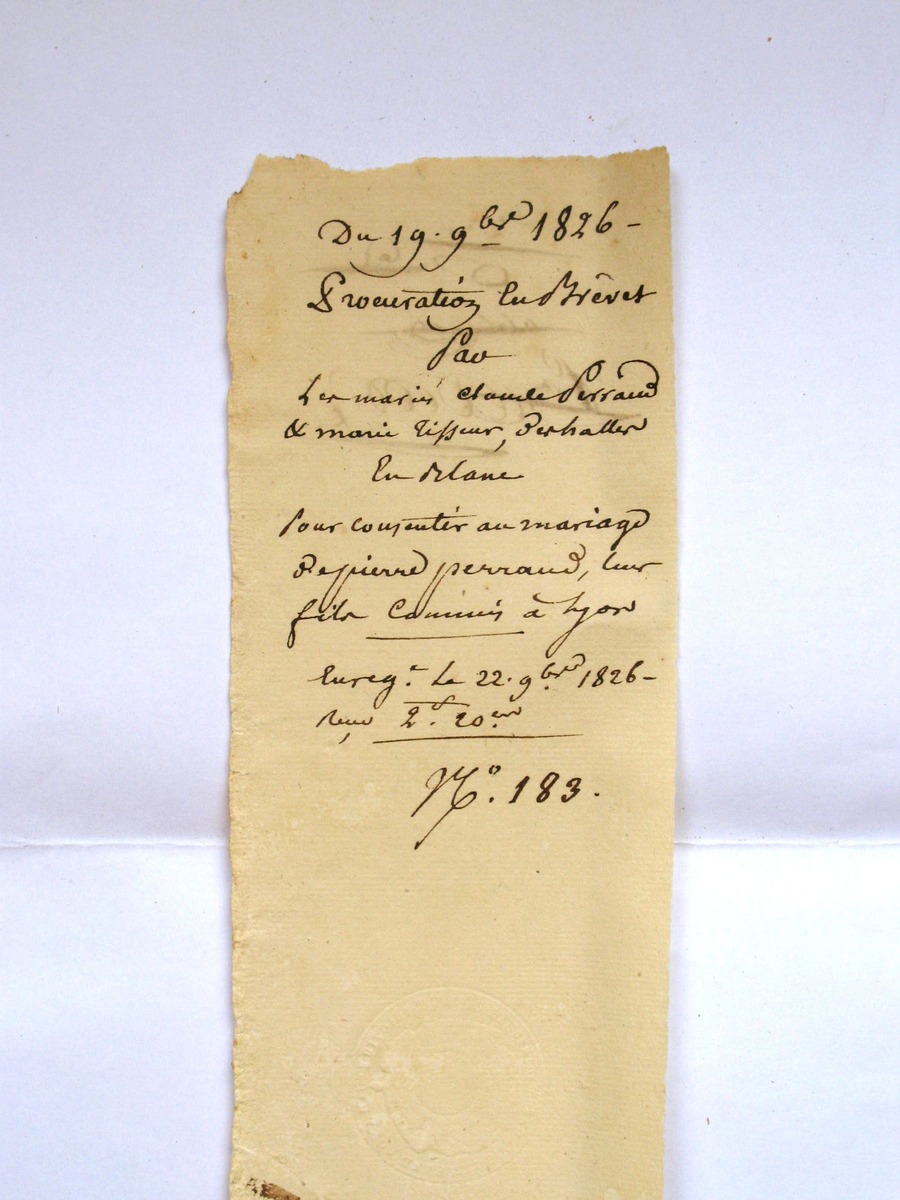 Du 19. 9bre 1826 -
Procuration En Brévet
Par
Les mariés claude Perraud
& marie Tisseur,
En
Pour consentir au mariage
de pierre perraud, leur
fils Commis à Lyon
Enreg.t Le 22. 9bre 1826 -
Reçu 2.f 20.c
No. 183.